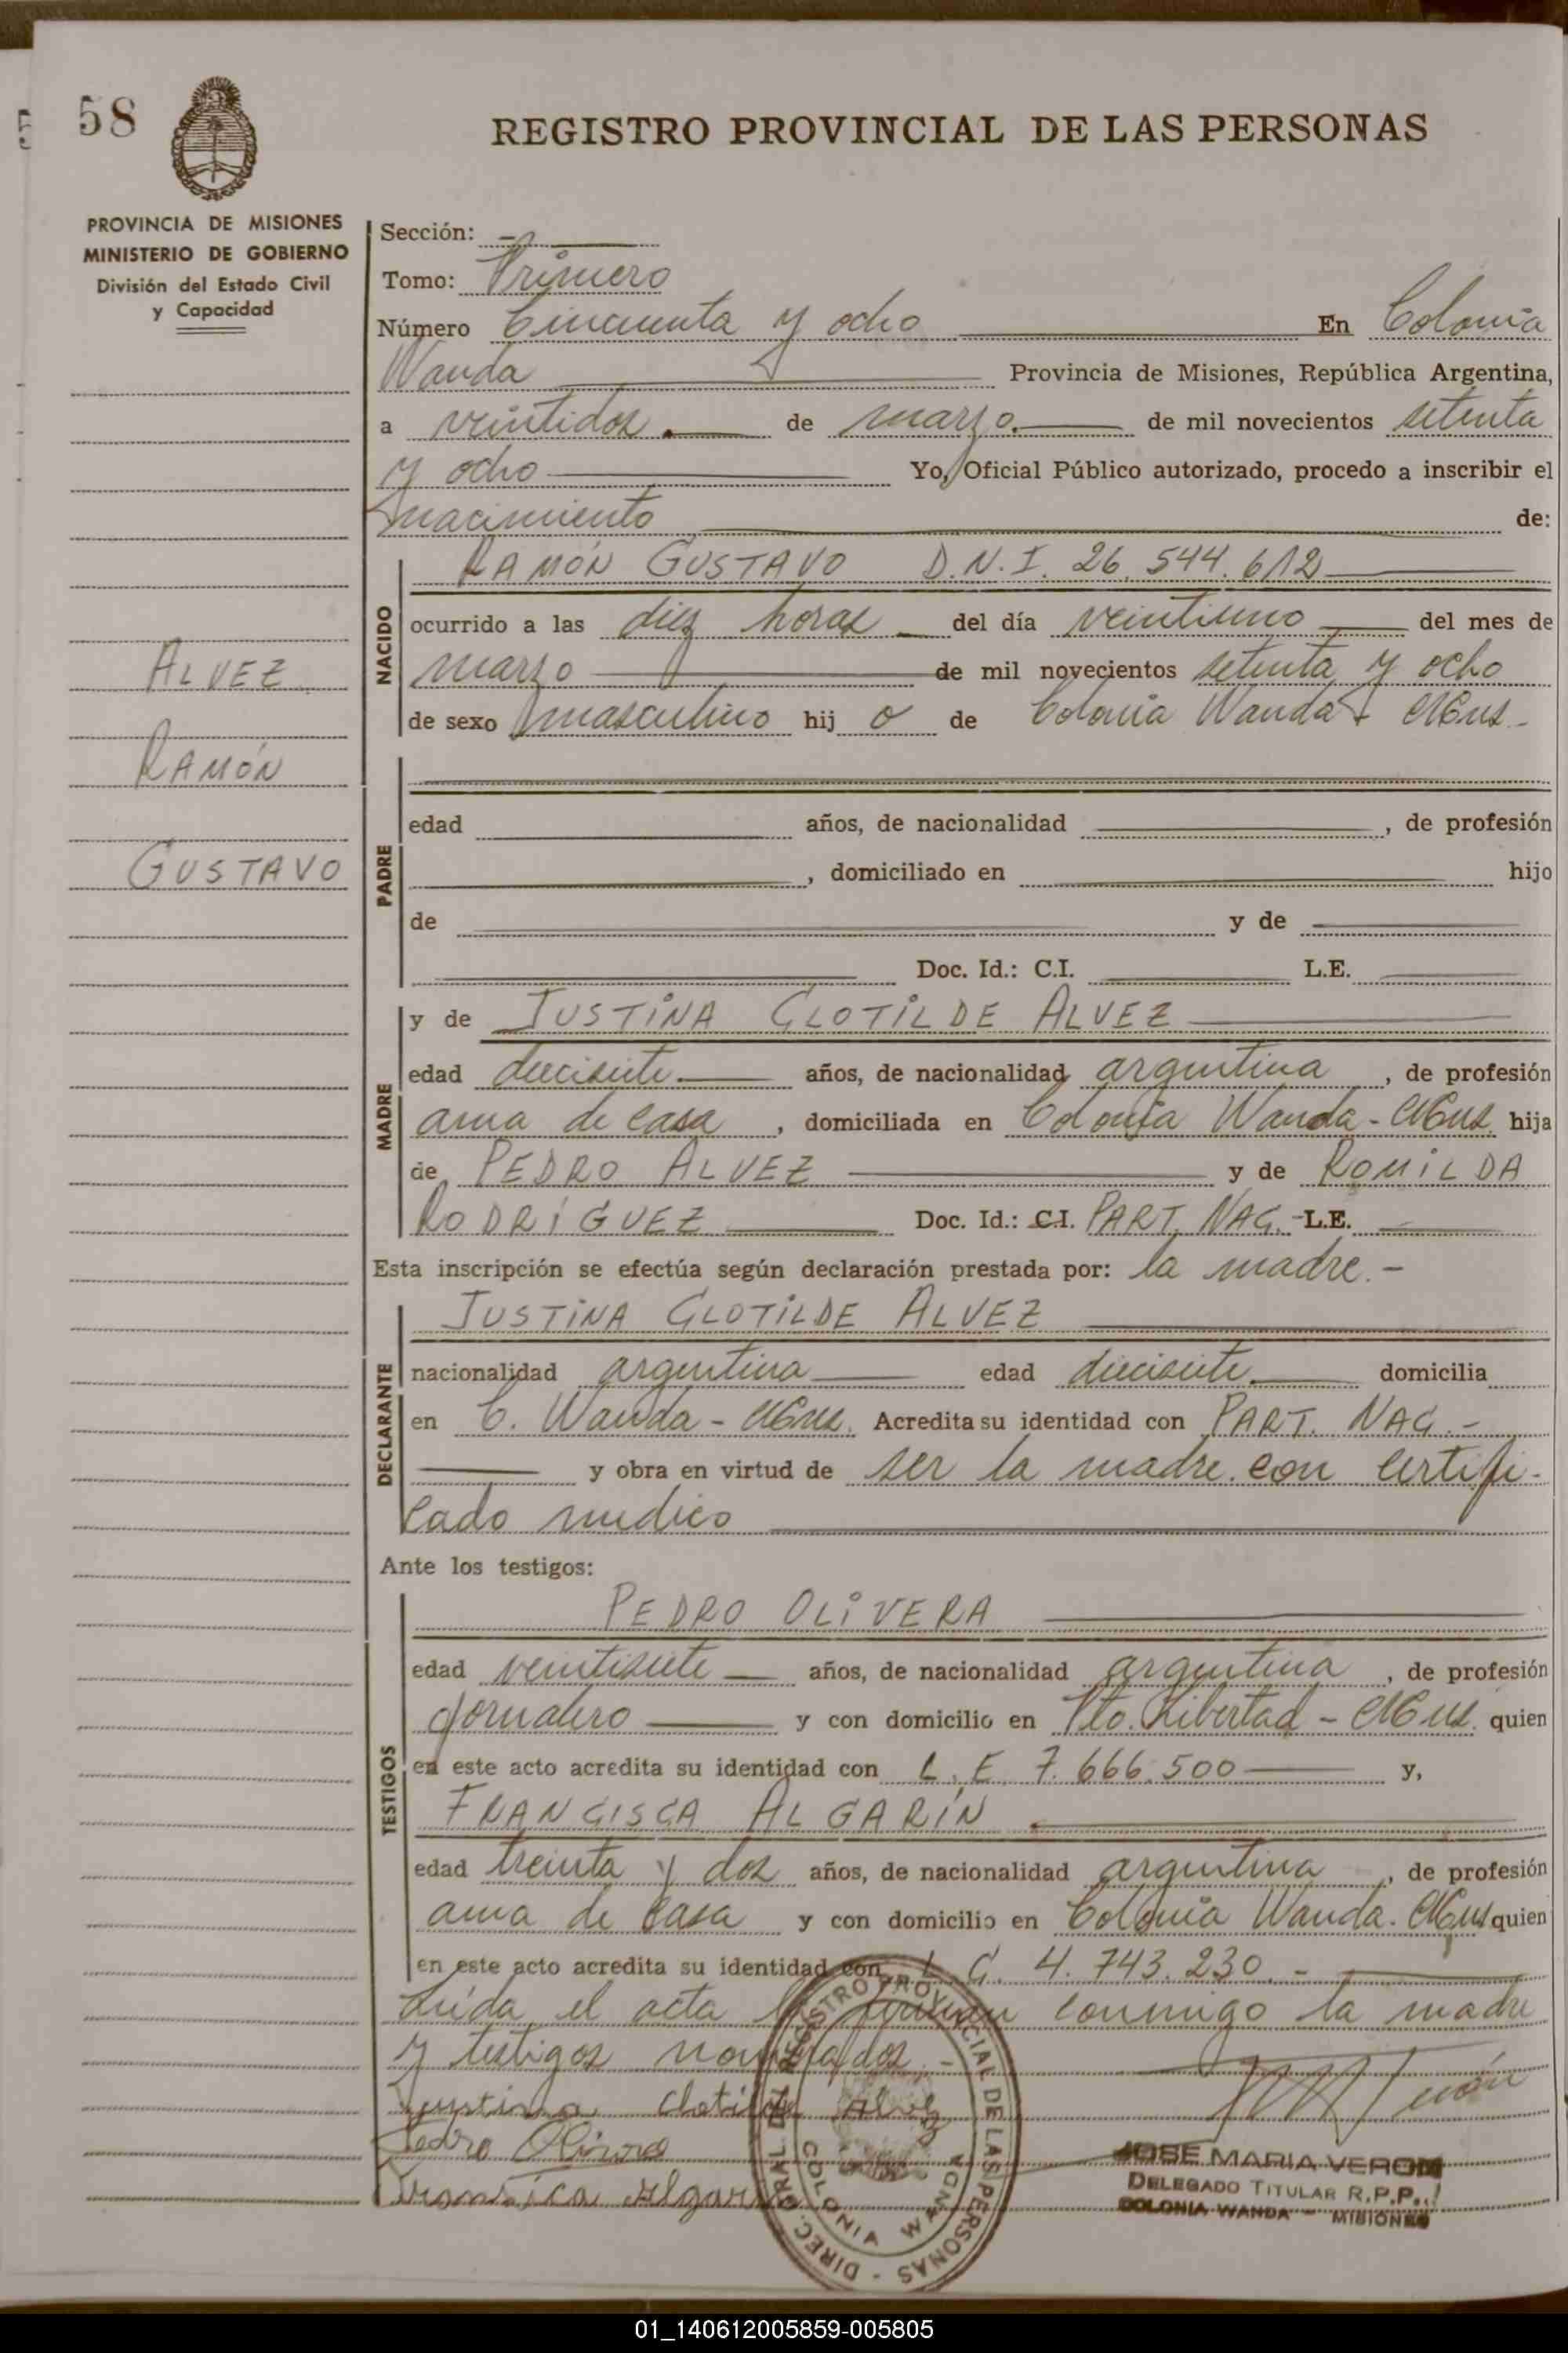 58
REGISTRO PROVINCIAL DE LAS PERSONAS
PROVINCIA DE MISIONES
MINISTERIO DE GOBIERNO
División del Estado Civil
y Capacidad
Sección: -
Tomo: Primero
Número Cincuenta y ocho En Colonia
Wanda Provincia de Misiones, República Argentina,
a veintidos. de marzo. de mil novecientos setenta
y ocho Yo, Oficial Público autorizado, procedo a inscribir el
nacimiento de:
ALVEZ
RAMÓN
GUSTAVO
NACIDO
RAMÓN GUSTAVO D.N.I. 26.544.612
ocurrido a las diez horas del día veintiuno del mes de
marzo de mil novecientos setenta y ocho
de sexo masculino hij o de Colonia Wanda - Mnes.-
PADRE
edad años, de nacionalidad , de profesión
, domiciliado en hijo
de y de
Doc. Id.: C.I. L.E.
MADRE
y de JUSTINA CLOTILDE ALVEZ
edad diecisiete. años, de nacionalidad argentina , de profesión
ama de casa , domiciliada en Colonia Wanda - Mnes. hija
de PEDRO ALVEZ y de ROMILDA
RODRÍGUEZ Doc. Id.: C.I. PART. NAC. - L.E.
Esta inscripción se efectúa según declaración prestada por: la madre.-
DECLARANTE
JUSTINA CLOTILDE ALVEZ
nacionalidad argentina edad diecisiete. domicilia
en C. Wanda - Mnes. Acredita su identidad con PART. NAC.-
y obra en virtud de ser la madre. con certifi-
cado medico
Ante los testigos:
TESTIGOS
PEDRO OLIVERA
edad veintisiete años, de nacionalidad argentina , de profesión
jornalero y con domicilio en Pto. Libertad - Mnes. quien
en este acto acredita su identidad con L.E. 7.666.500 y,
FRANCISCA ALGARÍN
edad treinta y dos años, de nacionalidad argentina , de profesión
ama de casa y con domicilio en Colonia Wanda. Mnes quien
en este acto acredita su identidad con L.C. 4.743.230.-
Leida el acta la firman conmigo la madre
y testigos nombrados.-
Justina Clotilde Alvez
Pedro Olivera
DIREC. GRAL. DEL REGISTRO PROVINCIAL DE LAS PERSONAS -
COLONIA WANDA
JOSE MARIA VERON
DELEGADO TITULAR R.P.P.
COLONIA WANDA - MISIONES
01_140612005859-005805